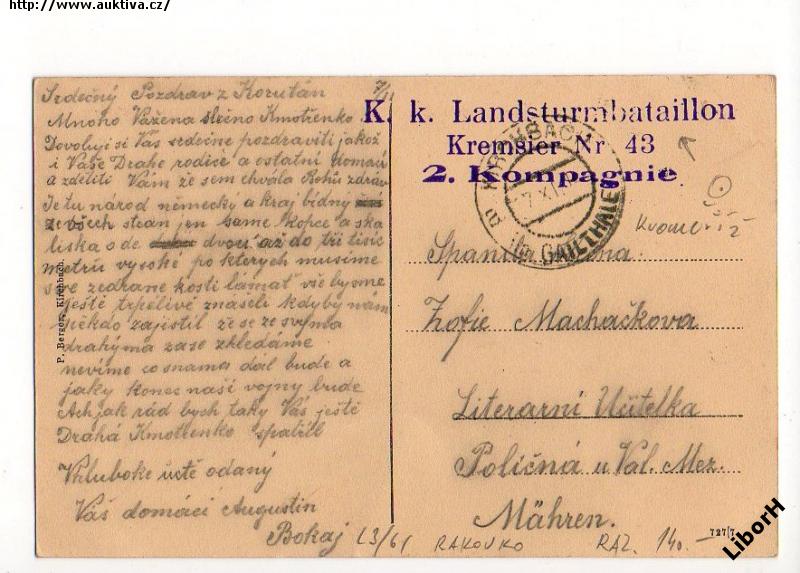 http://www.auktiva.cz/
Srdečný Pozdrav z Korután
Mnoho Vážena slečno Kmotřenko
Dovoluji si Vás srdečne pozdraviti jakož
i Vaše Drahe rodiče a ostatní domaci
a zděliti Vám že sem chvála Bohů zdráv
Je tu národ německy a kraj bídný
ze všech stran jen same kopce a ska
liska o de dvou až do tři tisíc
metrů vysoké po kterych musime
sve zedrane kosti lámať vše bysme
ještě trpělivě znaseli kdyby nám
někdo zajistil že se ze svyma
drahýma zase zhledáme
nevíme co snama dál bude a
jaky konec naší vojny bude
Ach jak rád bych taky Vás ještě
Drahá Kmotřenko spatřil
V hluboke úctě odaný
Váš domácí Augustin
Bokaj
P. Berger, Kirchbach.
K. k. Landsturmbataillon
Kremsier Nr. 43
2. Kompagnie
KIRCHBACH
im GAILTHALE
Kroměříž
Zofie Machačkova
Literarní Učitelka
Poličná u Val. Mez.
Mähren.
L3/61
RAKOUSKO
RAZ. 140.-
727/7
LiborH